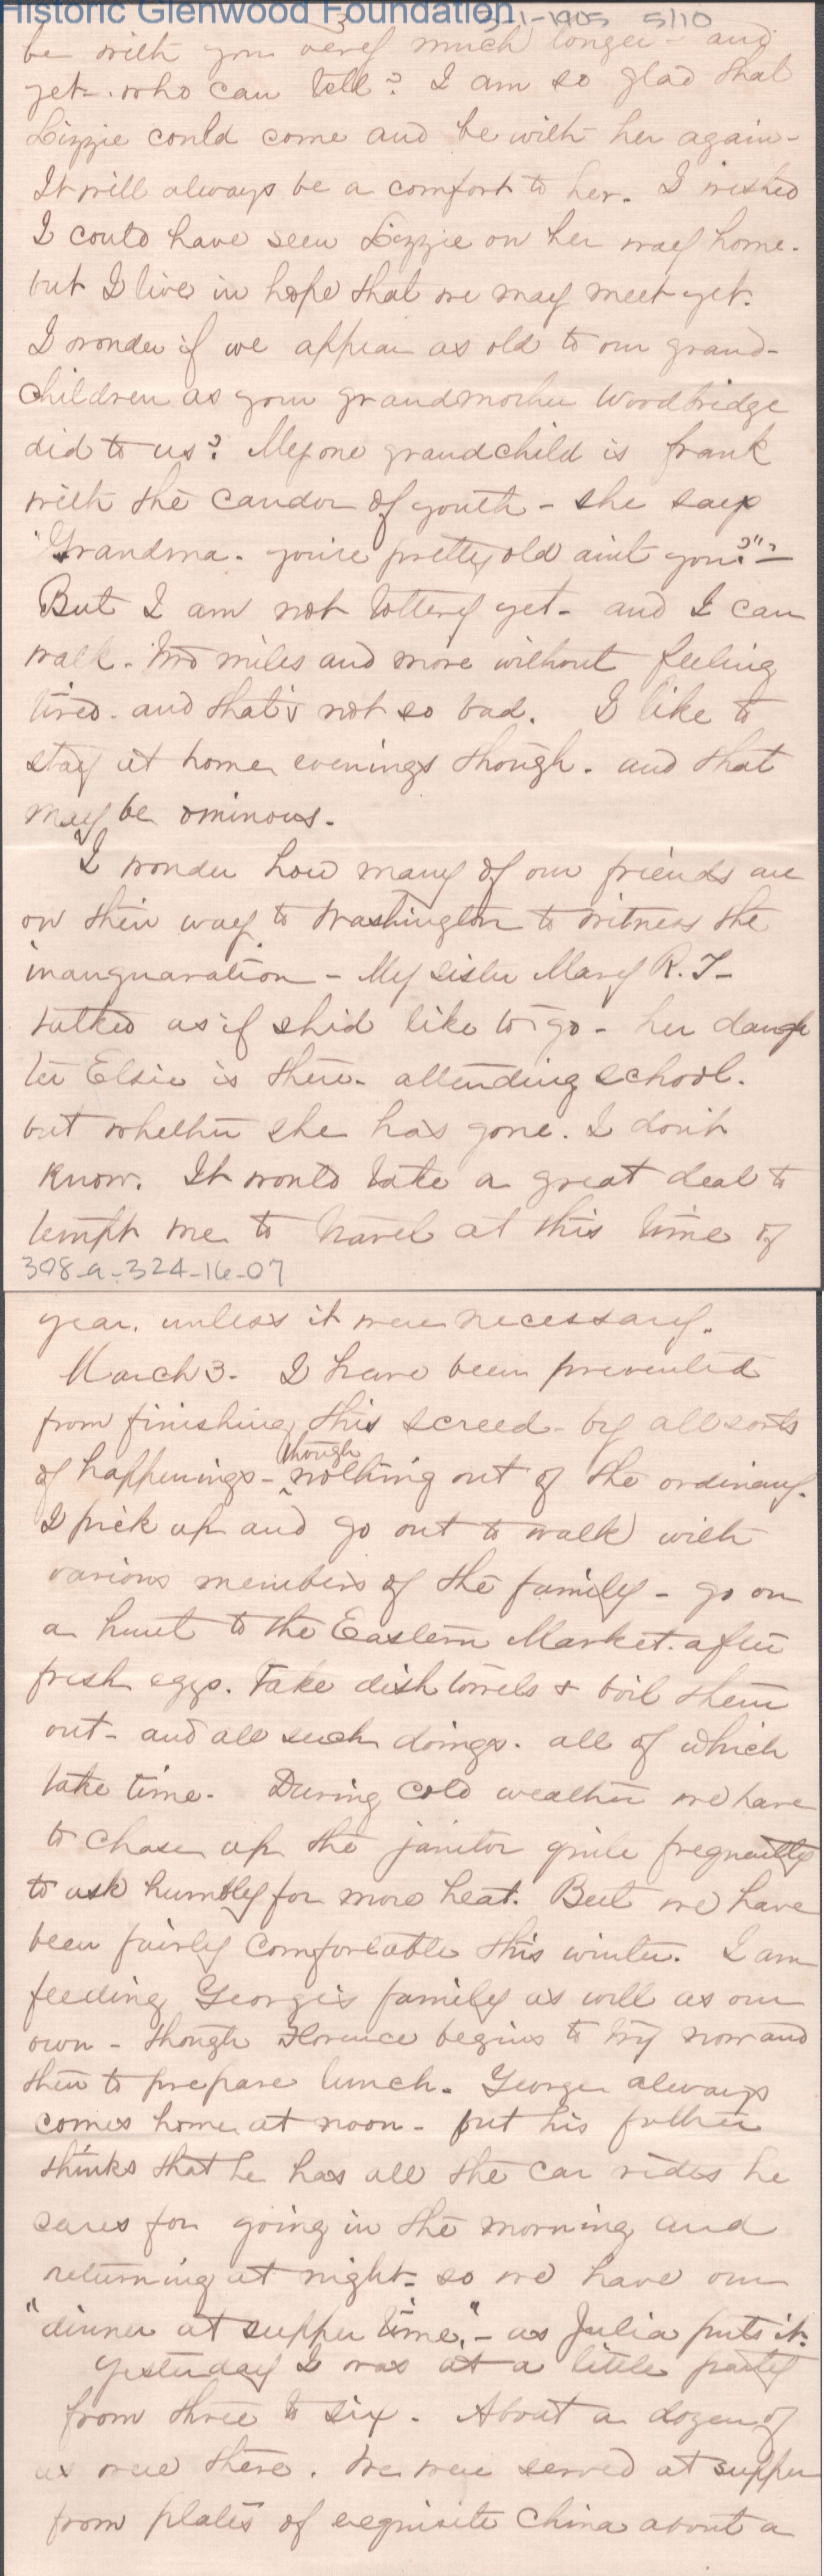 Historic Glenwood Foundation
3
3-1-1905 5/10
be with you very much longer - and
yet - who can tell? I am so glad that
Lizzie could come and be with her again -
It will always be a comfort to her. I wished
I could have seen Lizzie on her way home.
but I live in hope that we may meet yet.
I wonder if we appear as old to our grand-
children as your grandmother Woodbridge
did to us? My one grandchild is frank
with the candor of youth - she says
"Grandma. you're pretty old aint you?" -
But I am not tottery yet - and I can
walk. two miles and more without feeling
tired. and that's not so bad. I like to
stay at home evenings though. and that
may be ominous.
I wonder how many of our friends are
on their way to Washington to witness the
inauguaration - My sister Mary R. T-
talked as if she'd like to go - her daugh
ter Elsie is there. attending school.
but whether she has gone. I don't
know. It would take a great deal to
tempt me to travel at this time of
308-a-324-16-07
year. unless it were necessary.
March 3. I have been prevented
from finishing this screed - by all sorts
of happenings - though nothing out of the ordinary.
I pick up and go out to walk with
various members of the family - go on
a hunt to the Eastern Market. after
fresh eggs. Take dish towels & boil them
out - and all such doings. all of which
take time. During cold weather we have
to chase up the janitor quite frequently
to ask humbly for more heat. But we have
been fairly comfortable this winter. I am
feeding George's family as well as our
own - though Florence begins to try now and
then to prepare lunch. George always
comes home at noon - but his father
thinks that he has all the car rides he
cares for going in the morning and
returning at night - so we have our
"dinner at supper time," - as Julia puts it.
Yesterday I was at a little party
from three to six. About a dozen of
us were there. We were served at supper
from plates of exquisite China about a